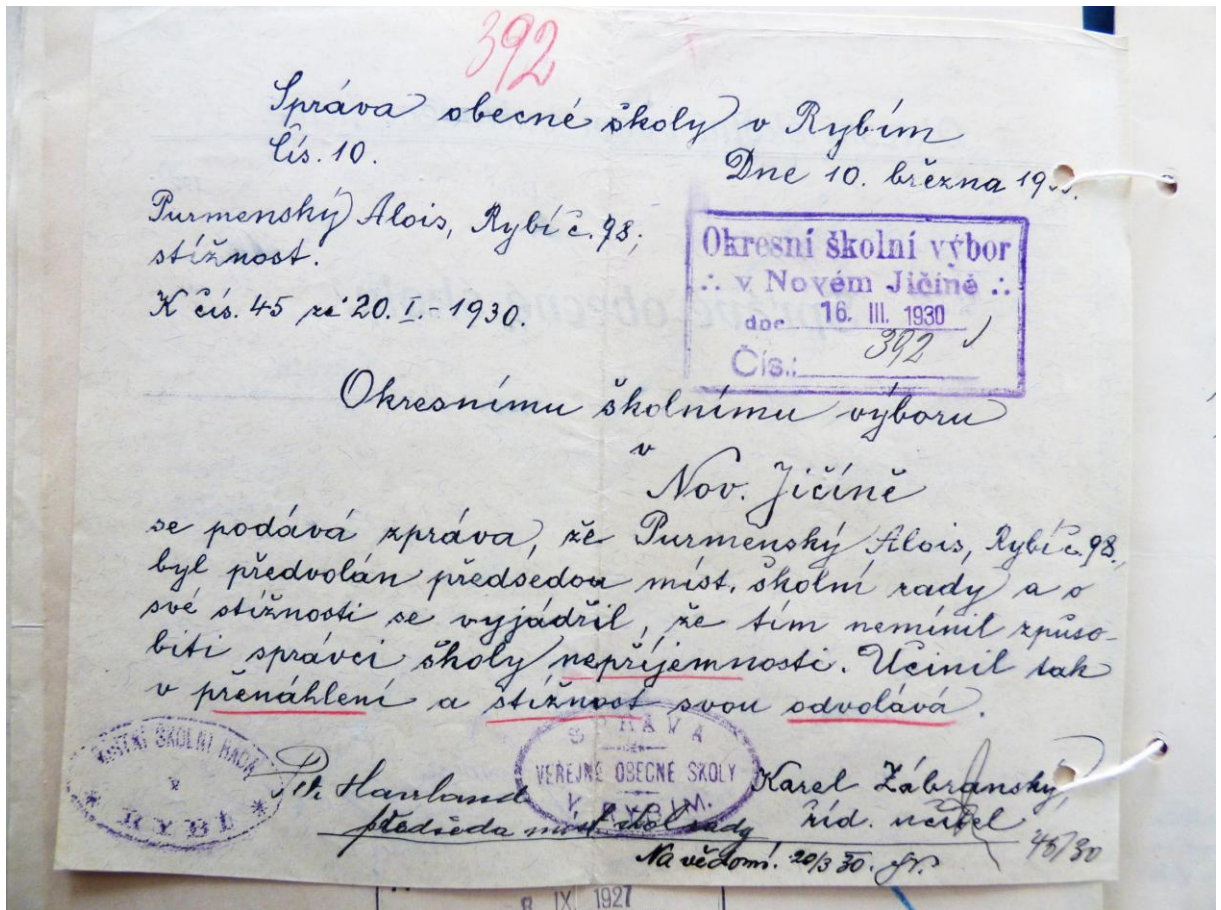 392
Správa obecné školy v Rybím
Čís. 10.
Dne 10. března
Purmenský Alois, Rybí č. 98,
stížnost.
K čís. 45 ze 20. I. - 1930.
Okresní školní výbor
∴ v Novém Jičíně ∴
doc 16. III. 1930
Čís.: 392
Okresnímu školnímu výboru
v
Nov. Jičíně
se podává zpráva, že Purmenský Alois, Rybí č. 98,
byl předvolán předsedou míst. školní rady a o
své stížnosti se vyjádřil, že tím nemínil způso-
biti správci školy nepříjemnosti. Učinil tak
v přenáhlení a stížnost svou odvolává.
MÍSTNÍ ŠKOLNÍ RADA
v
* RYBÍ *
SPRÁVA
VEŘEJNÉ OBECNÉ ŠKOLY
V RYBÍM.
Petr
předseda míst. škol. rady
Karel Zábranský,
říd. učitel
Na vědomí. 20/3 30.
45/30
8. IX. 1927